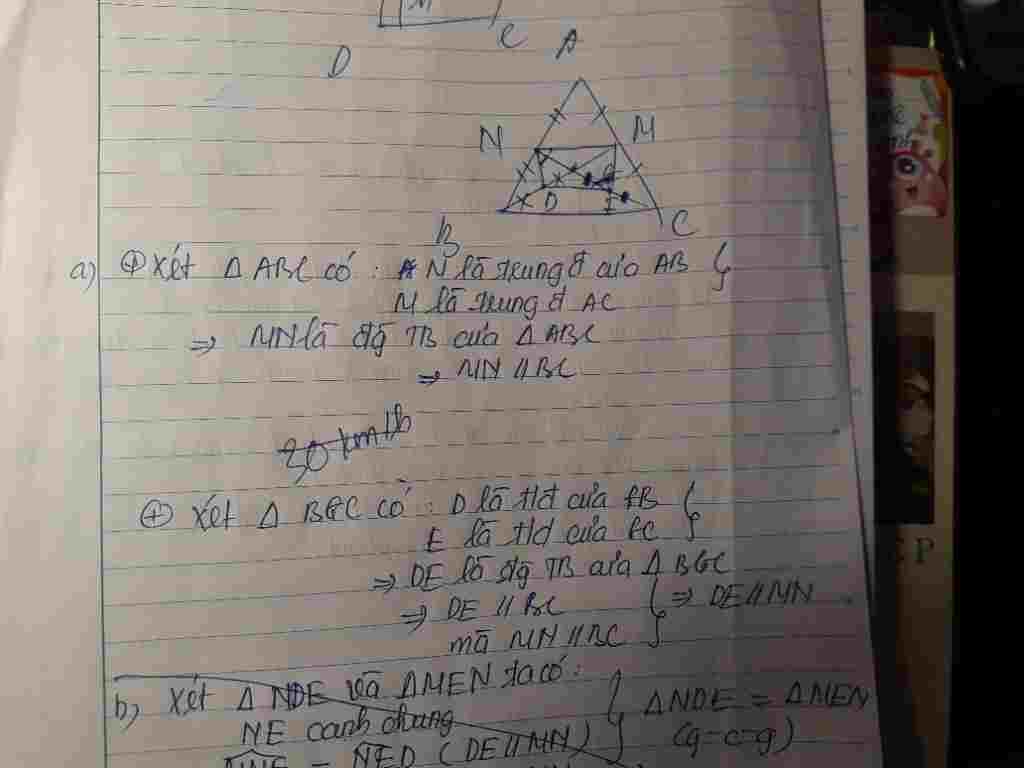 D
C
A
N
M
D
B
C
a) ⊕ Xét Δ ABC có : N là trung đ của AB }
M là trung đ AC
=> MN là đg TB của Δ ABC
=> MN // BC
30 km/h
⊕ Xét Δ BGC có : D là tđ của GB }
E là tđ của GC
=> DE là đg TB của Δ BGC
=> DE // BC } => DE // MN
mà MN // BC
b) Xét Δ NDE và ΔMEN ta có : } ΔNDE = ΔMEN
NE cạnh chung (g-c-g)
= NED (DE // MN)